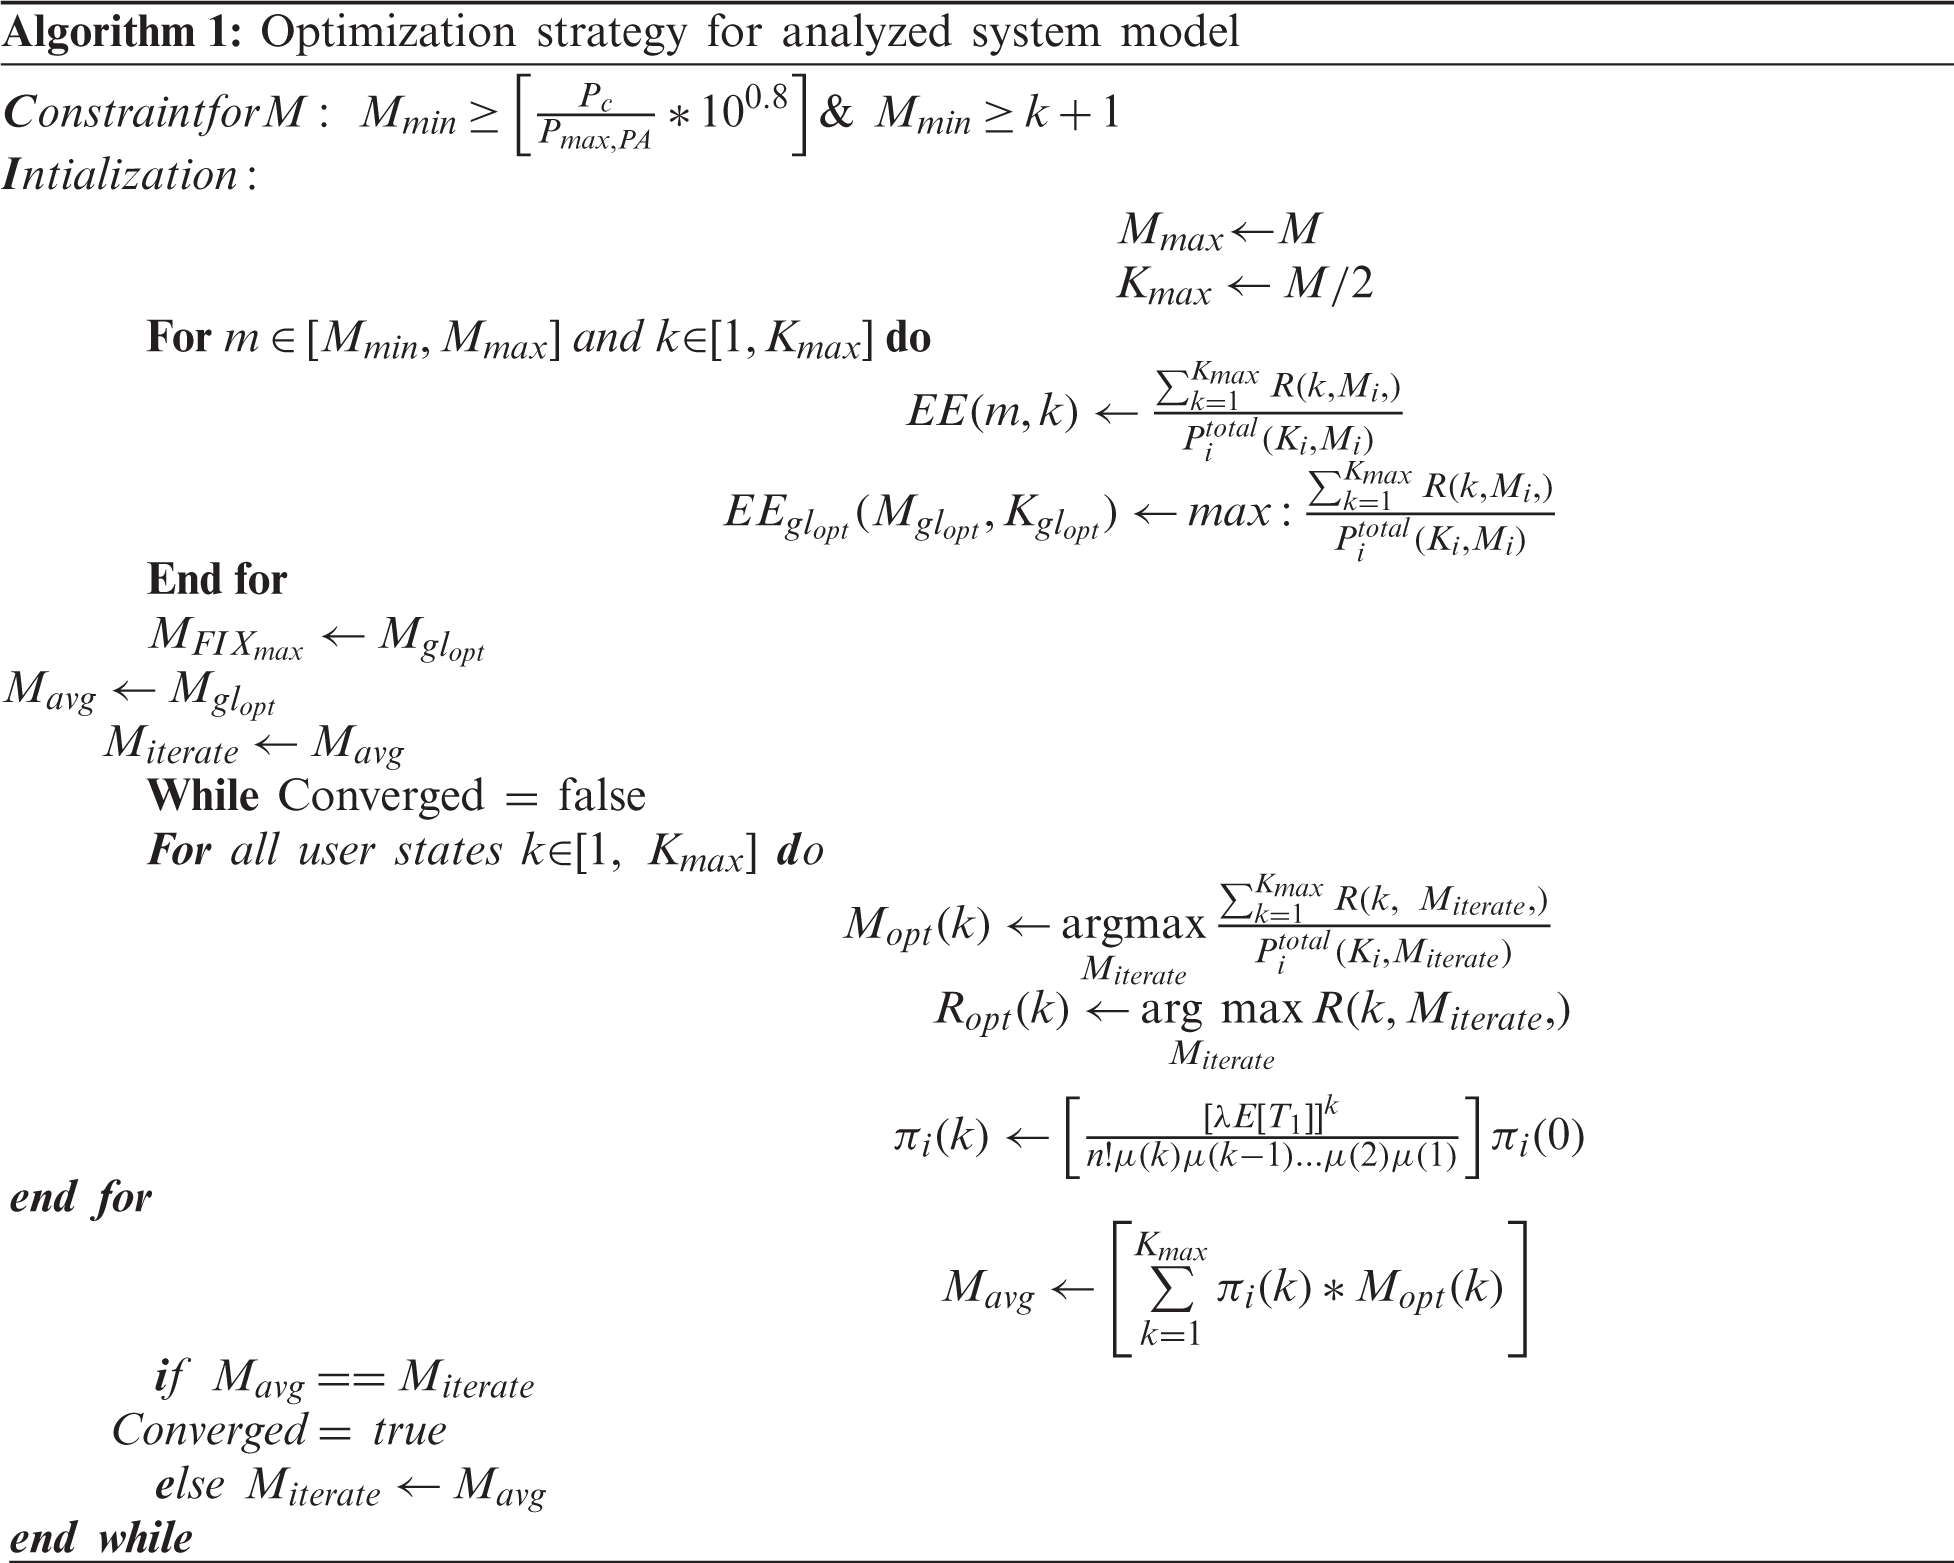 Algorithm 1: Optimization strategy for analyzed system model
ConstraintforM : M_{min} ≥ [\frac{P_c}{P_{max,PA}} * 10^{0.8}] & M_{min} ≥ k + 1
Intialization :
M_{max} ← M
K_{max} ← M/2
For m ∈ [M_{min}, M_{max}] and k∈[1, K_{max}] do
EE(m, k) ← \frac{\sum_{k=1}^{K_{max}} R(k,M_i,)}{P_i^{total}(K_i,M_i)}
EE_{gl_{opt}}(M_{gl_{opt}}, K_{gl_{opt}}) ← max : \frac{\sum_{k=1}^{K_{max}} R(k,M_i,)}{P_i^{total}(K_i,M_i)}
End for
M_{FIX_{max}} ← M_{gl_{opt}}
M_{avg} ← M_{gl_{opt}}
M_{iterate} ← M_{avg}
While Converged = false
For all user states k∈[1, K_{max}] do
M_{opt}(k) ← \underset{M_{iterate}}{argmax} \frac{\sum_{k=1}^{K_{max}} R(k, M_{iterate},)}{P_i^{total}(K_i,M_{iterate})}
R_{opt}(k) ← \underset{M_{iterate}}{arg max} R(k, M_{iterate},)
π_i(k) ← [\frac{[λE[T_1]]^k}{n!μ(k)μ(k−1)...μ(2)μ(1)}] π_i(0)
end for
M_{avg} ← [\sum_{k=1}^{K_{max}} π_i(k) * M_{opt}(k)]
if M_{avg} == M_{iterate}
Converged = true
else M_{iterate} ← M_{avg}
end while